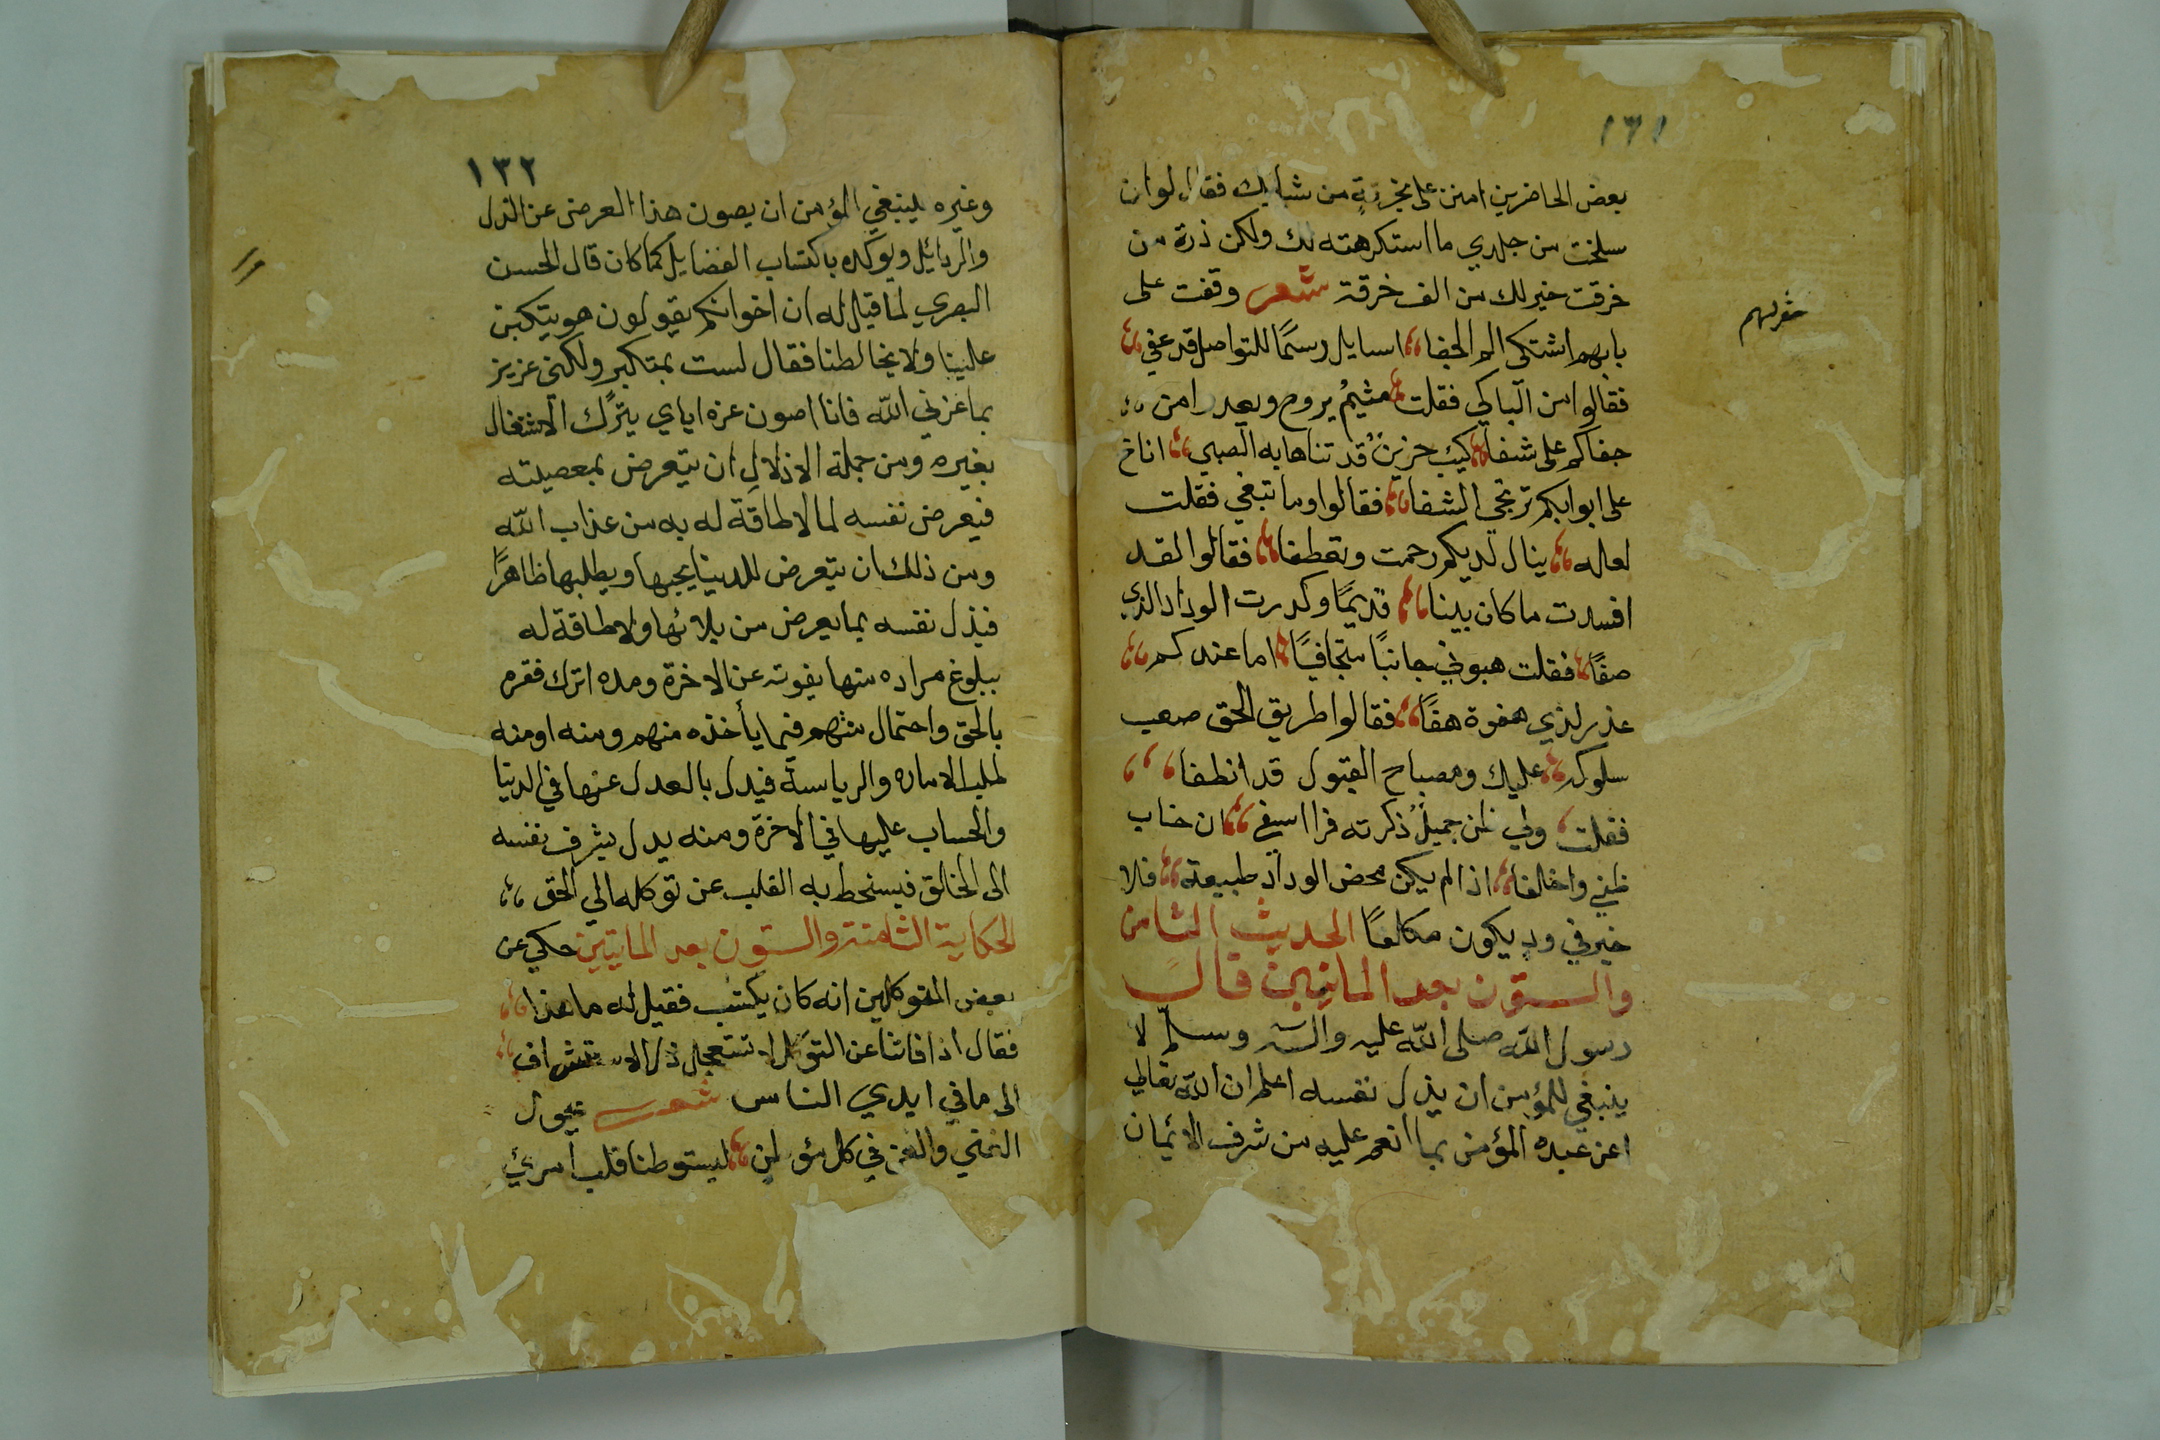 ١٣١
بعض الحاضرين امنن على بخرقة من شيابك فقال لو ان
سلخت من جلدي ما استكرهته لك ولكن ذرة من
خرقت خير لك من الف خرقة شعر وقفت على
بابهم اشتكى الم الجفا اسايل رسمًا للتواصل قد عفى
فقالوا من الباكي فقلت متيمٌ يروح ويغدر امن
جفاكم على شفا كئيب حزينٌ قد تناها به الصبي اناخ
على ابوابكم ترتجي الشفا فقالوا وما تبغي فقلت
لعله ينال لديكم رحمت وتعطفا فقالوا لقد
افسدت ما كان بيننا قديمًا وكدرت الوداد الذي
صفا فقلت هبوني جانبًا متجافيًا اما عندكم
عذر لذي هفوة هفا فقالوا طريق الحق صعب
سلوكه عليك ومصباح القبول قد انطفا
فقلت ولي ظن جميلٌ ذكرته فوا اسفي ان خاب
ظني واخلفا اذا لم يكن محض الوداد طبيعة فلا
خير في ود يكون مكلفًا الحديث الثامن
والستون بعد الماتين قال
رسول الله صلى الله عليه واله وسلم لا
ينبغي للمؤمن ان يذل نفسه اعلم ان الله تعالى
اعز عبده المؤمن بما انعم عليه من شرف الائمان
١٣٢
وغيره لينبغي المؤمن ان يصون هذا العرض عن الذل
والرذائل ويوكده باكتساب الفضايل كما كان قال الحسن
البصري لما قيل له ان اخوانكم يقولون هو يتكبر
علينا ولا يخالطنا فقال لست بمتكبر ولكني عزيز
بما عزني الله فانا اصون عزه اياي بترك الاشتغال
بغيره ومن جملة الاذلال ان يتعرض بمعصيته
فيعرض نفسه لما لا طاقة له به من عذاب الله
ومن ذلك ان يتعرض للدينا يحبها ويطلبها ظاهرًا
فيذل نفسه بما يعرض من بلائها ولا طاقة له
ببلوغ مراده منها يفوته عن الاخرة ومده اترك فقره
بالحق واحتمال منتهم فيما يأخذه منهم ومنه اومنه
طلب الاماره والرياسة فيدل بالعدل عنها في الدنيا
والحساب عليها في الاخرة ومنه يدل بشرف نفسه
الى الخالق فيسنحط به القلب عن توكله الي الحق
الحكاية الثامنة والستون بعد الماتيين حكي عن
بعض المتوكلين انه كان يكتب فقيل له ما هذا
فقال اذا فاتنا عن التوكل لا نستعجل ذل الاستشراف
الى ما في ايدي الناس شعر يجول
الغني والعز في كل موطن ليستوطنا قلب امرئ